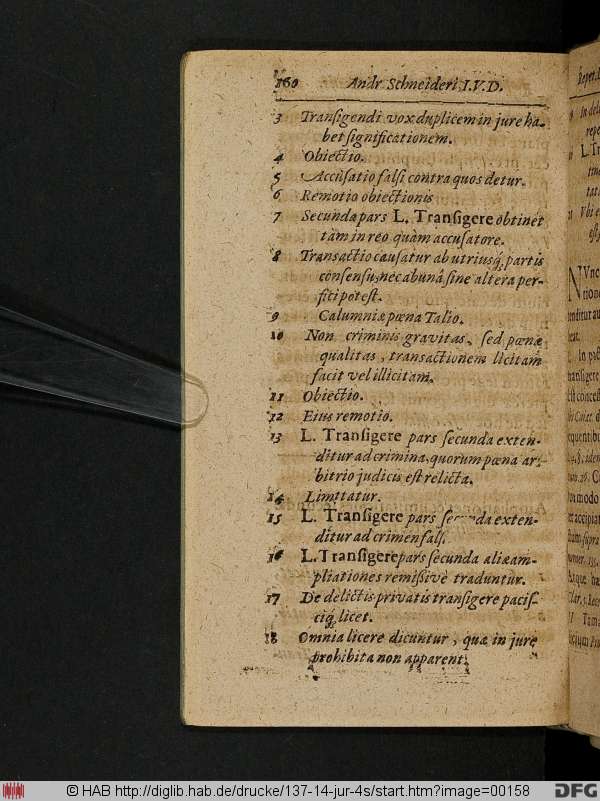 160 Andr. Schneideri I.V.D.
3 Tranſigendi vox duplicem in jure ha-
bet ſignificationem.
4 Obiectio.
5 Accuſatio falſi contra quos detur.
6 Remotio obiectionis
7 Secunda pars L. Tranſigere obtinet
tàm in reo quàm accuſatore.
8 Tranſactio cauſatur ab utriusq́; partis
conſenſu, nec ab unâ, ſine altera per-
fici poteſt.
9 Calumniæ pœna Talio.
10 Non criminis gravitas, ſed pœnæ
qualitas, tranſactionem licitam
facit vel illicitam.
11 Obiectio.
12 Eius remotio.
13 L. Tranſigere pars ſecunda exten-
ditur ad crimina, quorum pœna ar-
bitrio judicis eſt relicta.
14 Limitatur.
15 L. Tranſigere pars ſecunda exten-
ditur ad crimen falſi
16 L. Tranſigere pars ſecunda aliæ am-
pliationes remiſſivè traduntur.
17 De delictis privatis tranſigere paciſ-
ciq́; licet.
18 Omnia licere dicuntur, quæ in jure
prohibita non apparent.
© HAB http://diglib.hab.de/drucke/137-14-jur-4s/start.htm?image=00158
DFG